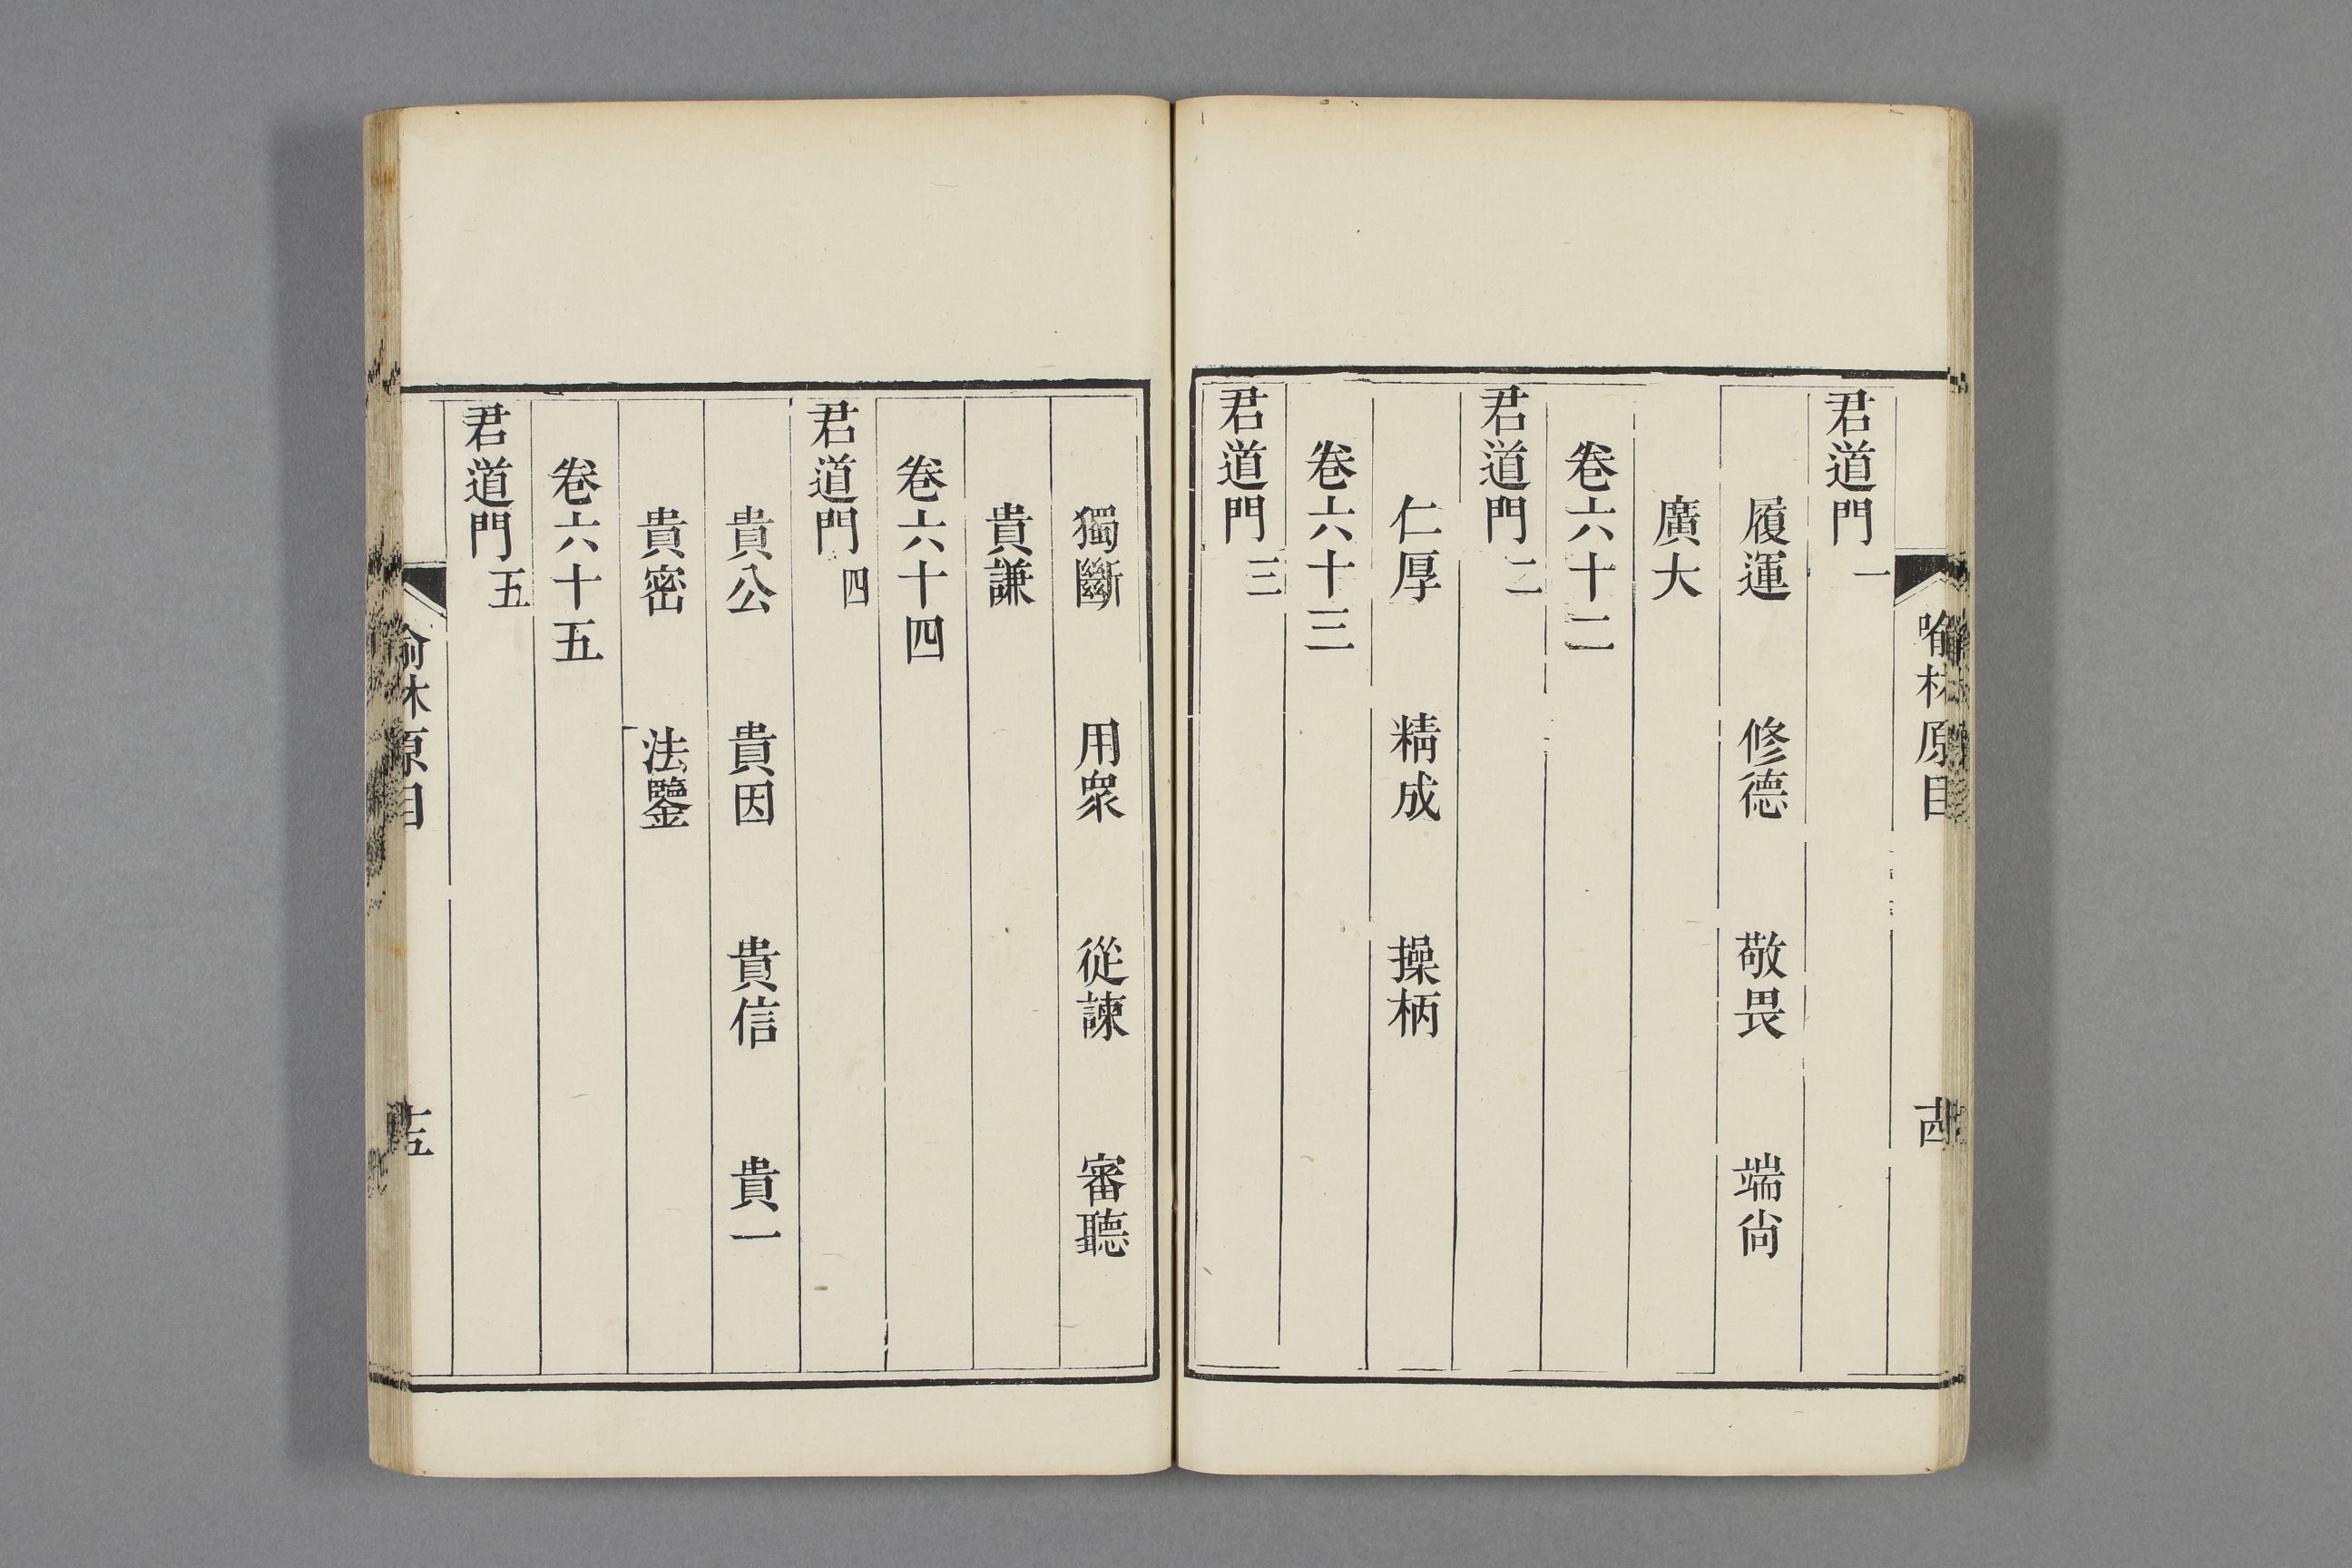 君道門一
履運 修德 敬畏 端尙
廣大
卷六十二
君道門二
仁厚 精成 操柄
卷六十三
君道門三
喻林原目
十四
獨斷 用衆 從諫 審聽
貴謙
卷六十四
君道門四
貴公 貴因 貴信 貴一
貴密 法鑒
卷六十五
君道門五
喻林原目
十五